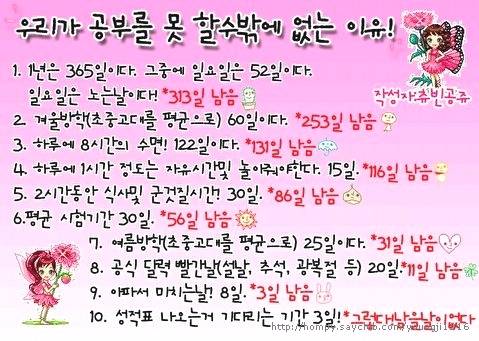 우리가 공부를 못 할수밖에 없는 이유!
작성자:츄빈공쥬
1. 1년은 365일이다. 그중에 일요일은 52일이다.
일요일은 노는날이다! *313일 남음
2. 겨울방학(초중고대를 평균으로) 60일이다. *253일 남음
3. 하루에 8시간의 수면! 122일이다. *131일 남음
4. 하루에 1시간 정도는 자유시간및 놀아줘야한다. 15일. *116일 남음
5. 2시간동안 식사및 군것질시간! 30일. *86일 남음
6.평균 시험기간 30일. *56일 남음
7. 여름방학(초중고대를 평균으로) 25일이다. *31일 남음
8. 공식 달력 빨간날(설날, 추석, 광복절 등) 20일. *11일 남음
9. 아파서 미치는날! 8일. *3일 남음
10. 성적표 나오는거 기다리는 기간 3일! *그럼대남을날이없다